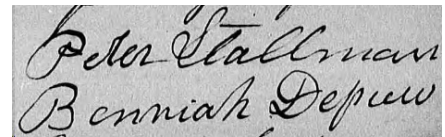 Peter Stallman
Benniah Depuw